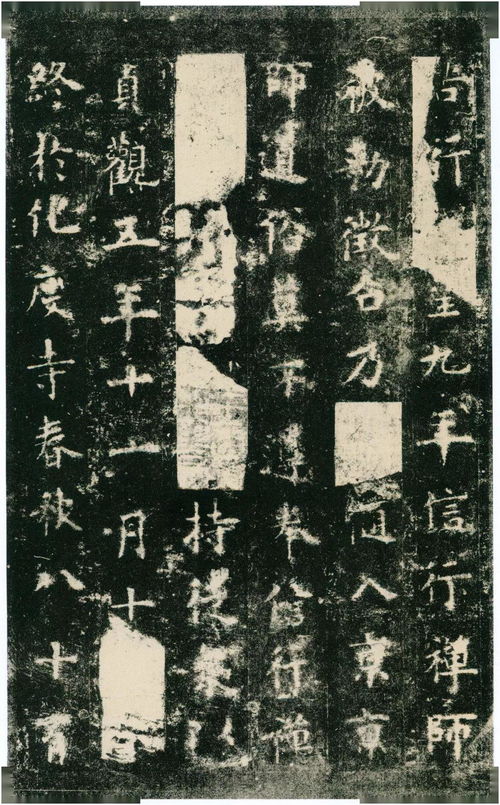 尚行九年信行禪師
被勅徵召乃入京京
師道俗莫不遵奉信行
持徒眾以
貞觀五年十一月十
終於化度寺春秋八十有